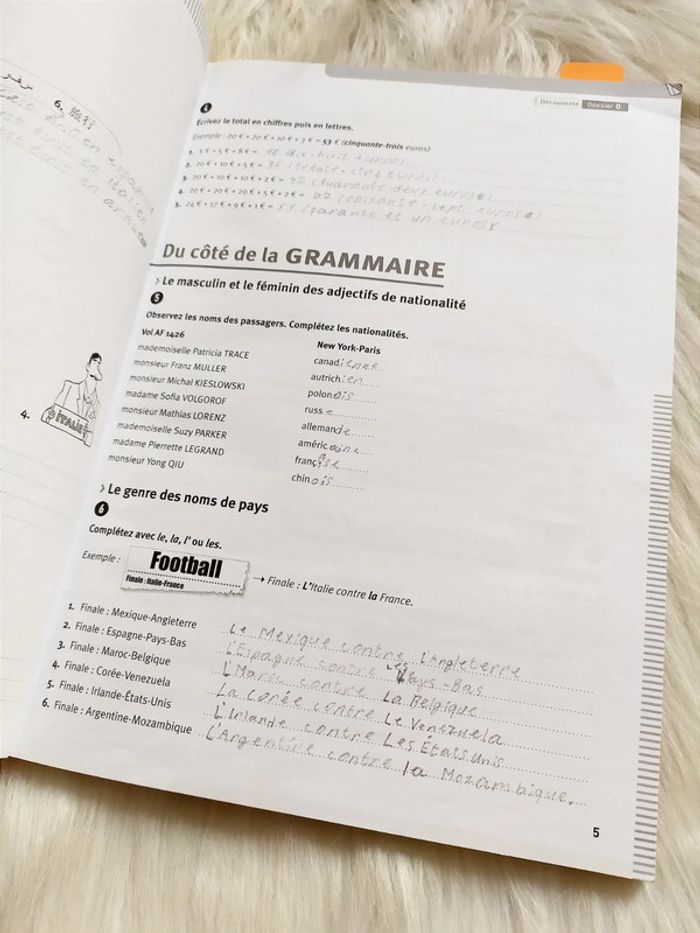 6. 旅行
4.
ITALIE
Découverte Dossier 0
4
Écrivez le total en chiffres puis en lettres.
Exemple : 20 € + 20 € + 10 € + 3 € = 53 € (cinquante-trois euros)
1. 5 € + 5 € + 8 € = 18 dix-huit euros)
2. 20 € + 10 € + 5 € = 35 (trente-cinq euros)
3. 20 € + 10 € + 10 € + 2 € = 42 (quarante deux euros)
4. 20 € + 20 € + 20 € + 5 € + 2 € = 67 (soissante-sept euros)
5. 24 € + 17 € + 9 € + 1 € = 51 (
Du côté de la GRAMMAIRE
› Le masculin et le féminin des adjectifs de nationalité
5
Observez les noms des passagers. Complétez les nationalités.
Vol AF 1426 New York-Paris
mademoiselle Patricia TRACE canadienne
monsieur Franz MULLER autrichien
monsieur Michal KIESLOWSKI polonois
madame Sofia VOLGOROF russe
monsieur Mathias LORENZ allemande
mademoiselle Suzy PARKER américaine
madame Pierrette LEGRAND
monsieur Yong QIU chinois
› Le genre des noms de pays
6
Complétez avec le, la, l' ou les.
Exemple : Football
Finale : Italie-France
→ Finale : L'Italie contre la France.
1. Finale : Mexique-Angleterre Le Mexique contre l'Angleterre
2. Finale : Espagne-Pays-Bas L'Espagne contre les Pays-Bas
3. Finale : Maroc-Belgique L'Maroc contre La Belgique
4. Finale : Corée-Venezuela La Corée contre Le Venezuela
5. Finale : Irlande-États-Unis L'Irlande contre Les États Unis
6. Finale : Argentine-Mozambique L'Argentine contre la Mozambique.
5